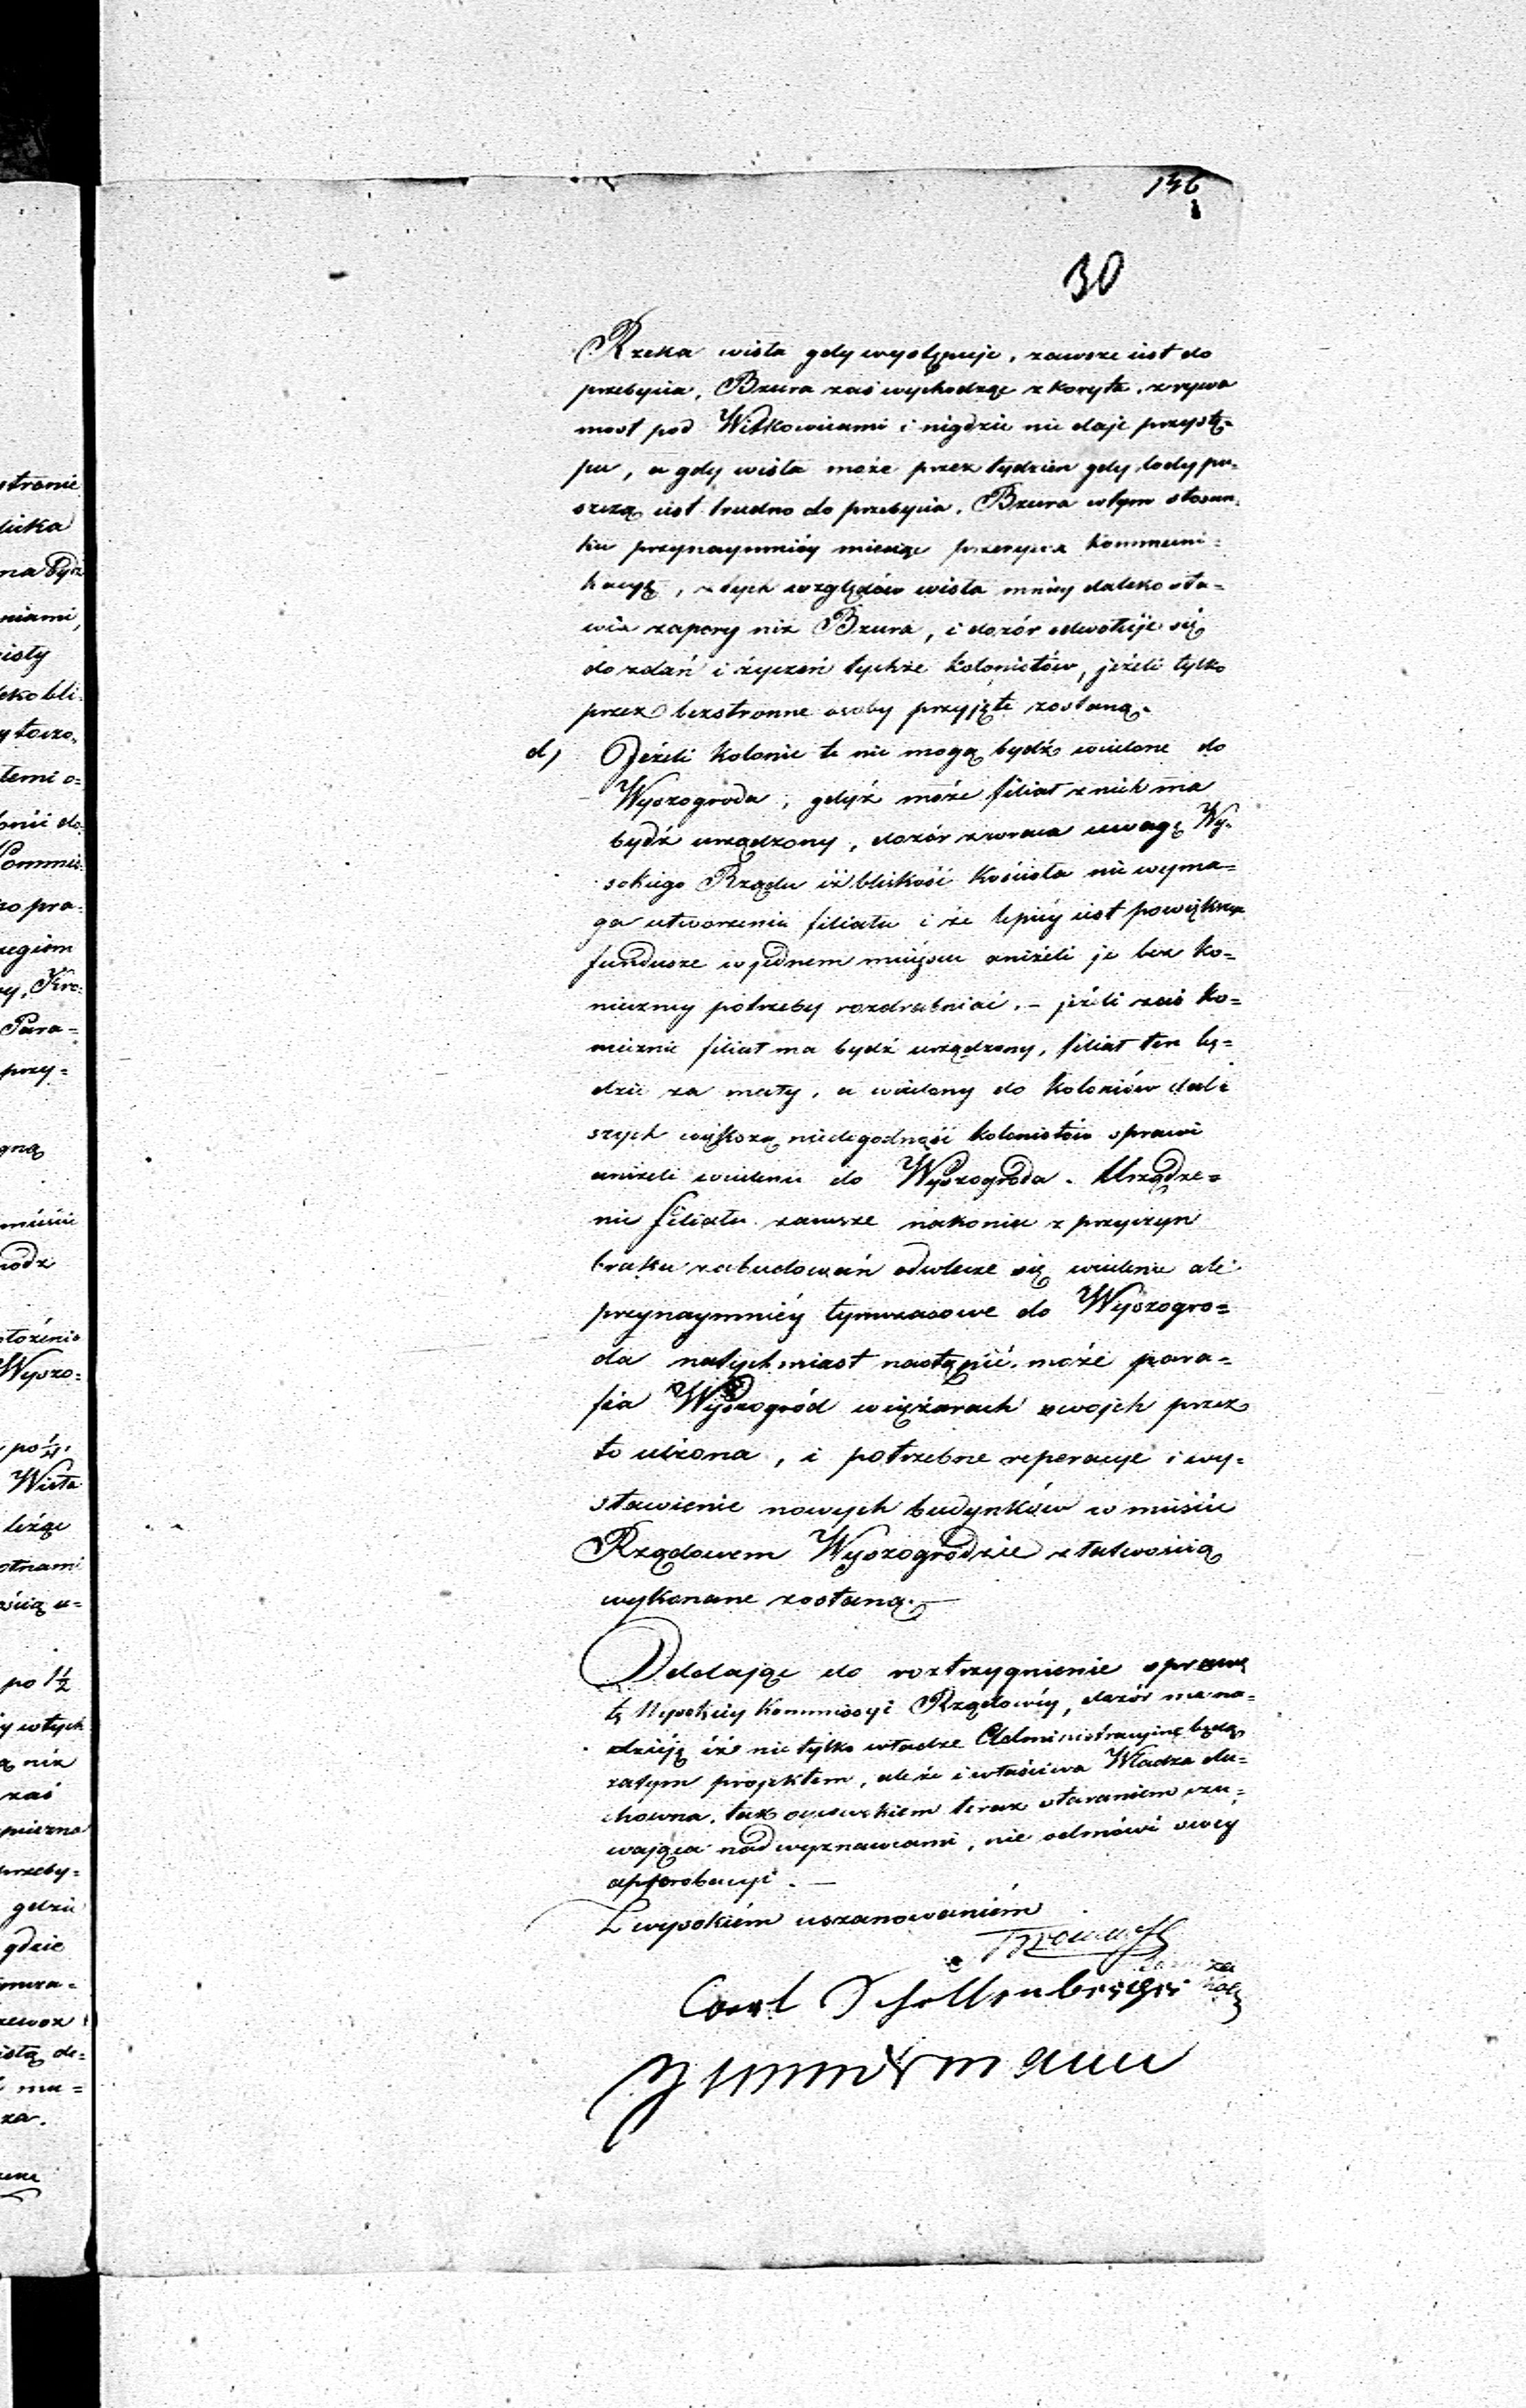 146
30
Rzeka wisła gdy występuje, zawsze iest do
przebycia, Bzura zaś wychodząc z koryta, zrywa
most pod Witkowicami i nigdzie nie daje przystę-
pu, a gdy wisła może przez tydzień gdy lody pu-
szczą iest trudno do przebycia, Bzura wtym stosun-
ku przynaymniéy miesiąc przerywa kommuni-
kacyę, z tych względów wisła mniéy daleko sta-
wia zapory niż Bzura, i dozór odwołuje się
do zdań i życzeń tychże kolonistów, jeżeli tylko
przez bezstronne osoby przyjęte zostaną.
d) Jeżeli kolonie te nie mogą bydź wcielone do
Wyszogroda, gdyż może filiał z nich ma
bydź urządzony, dozór zwraca uwagę Wy-
sokiego Rządu iż bliskość kościoła nie wyma-
ga utworzenia filiału i że lepiéy iest powiększyć
fundusze w jednem mieyscu aniżeli je bez ko-
nieczney potrzeby rozdrabniać. – jeżeli zaś ko-
niecznie filiał ma bydź urządzony, filiał ten bę-
dzie za mały, a wcielony do koloniów dal-
szych większą niedogodność kolonistów sprawi
aniżeli wcielenie do Wyszogroda. Urządze-
nie filiału zawsze nakoniec z przyczyn
braku zabudowań odwlecze się wcielenie ale
przynaymniéy tymczasowe do Wyszogro-
da natychmiast nastąpić może para-
fia Wyszogród w ciężarach swojch przez
to ulżona, i potrzebne reperacye i wy-
stawienie nowych budynków w mieście
Rządowem Wyszogrodzie z łatwością
wykonane zostaną. –
Oddając do roztrzygnienie sprawę
tę Wysokiéy Kommissyi Rządowéy, dozór ma na-
dzieję iż nie tylko władze Administracyjne będą
zatym projektem, ale że i właściwa Władza du-
chowna, tak oycowskiem teraz staraniem czu-
wająca nad wyznawcami, nie odmówi swey
approbacyi. –
Z wysokiém uszanowaniém
Carl Schollenberger
Zimmermann